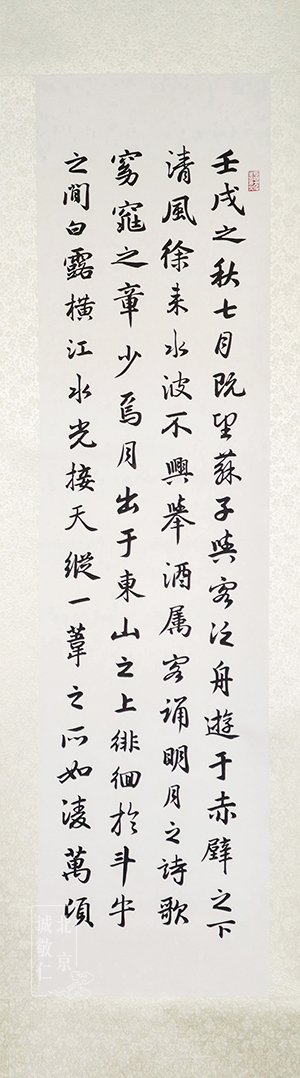 壬戌之秋七月既望蘇子與客泛舟遊于赤壁之下
清風徐来水波不興舉酒属客誦明月之詩歌
窈窕之章少焉月出于東山之上徘徊於斗牛
之間白露横江水光接天縱一葦之所如凌萬頃
北京
诚敬仁